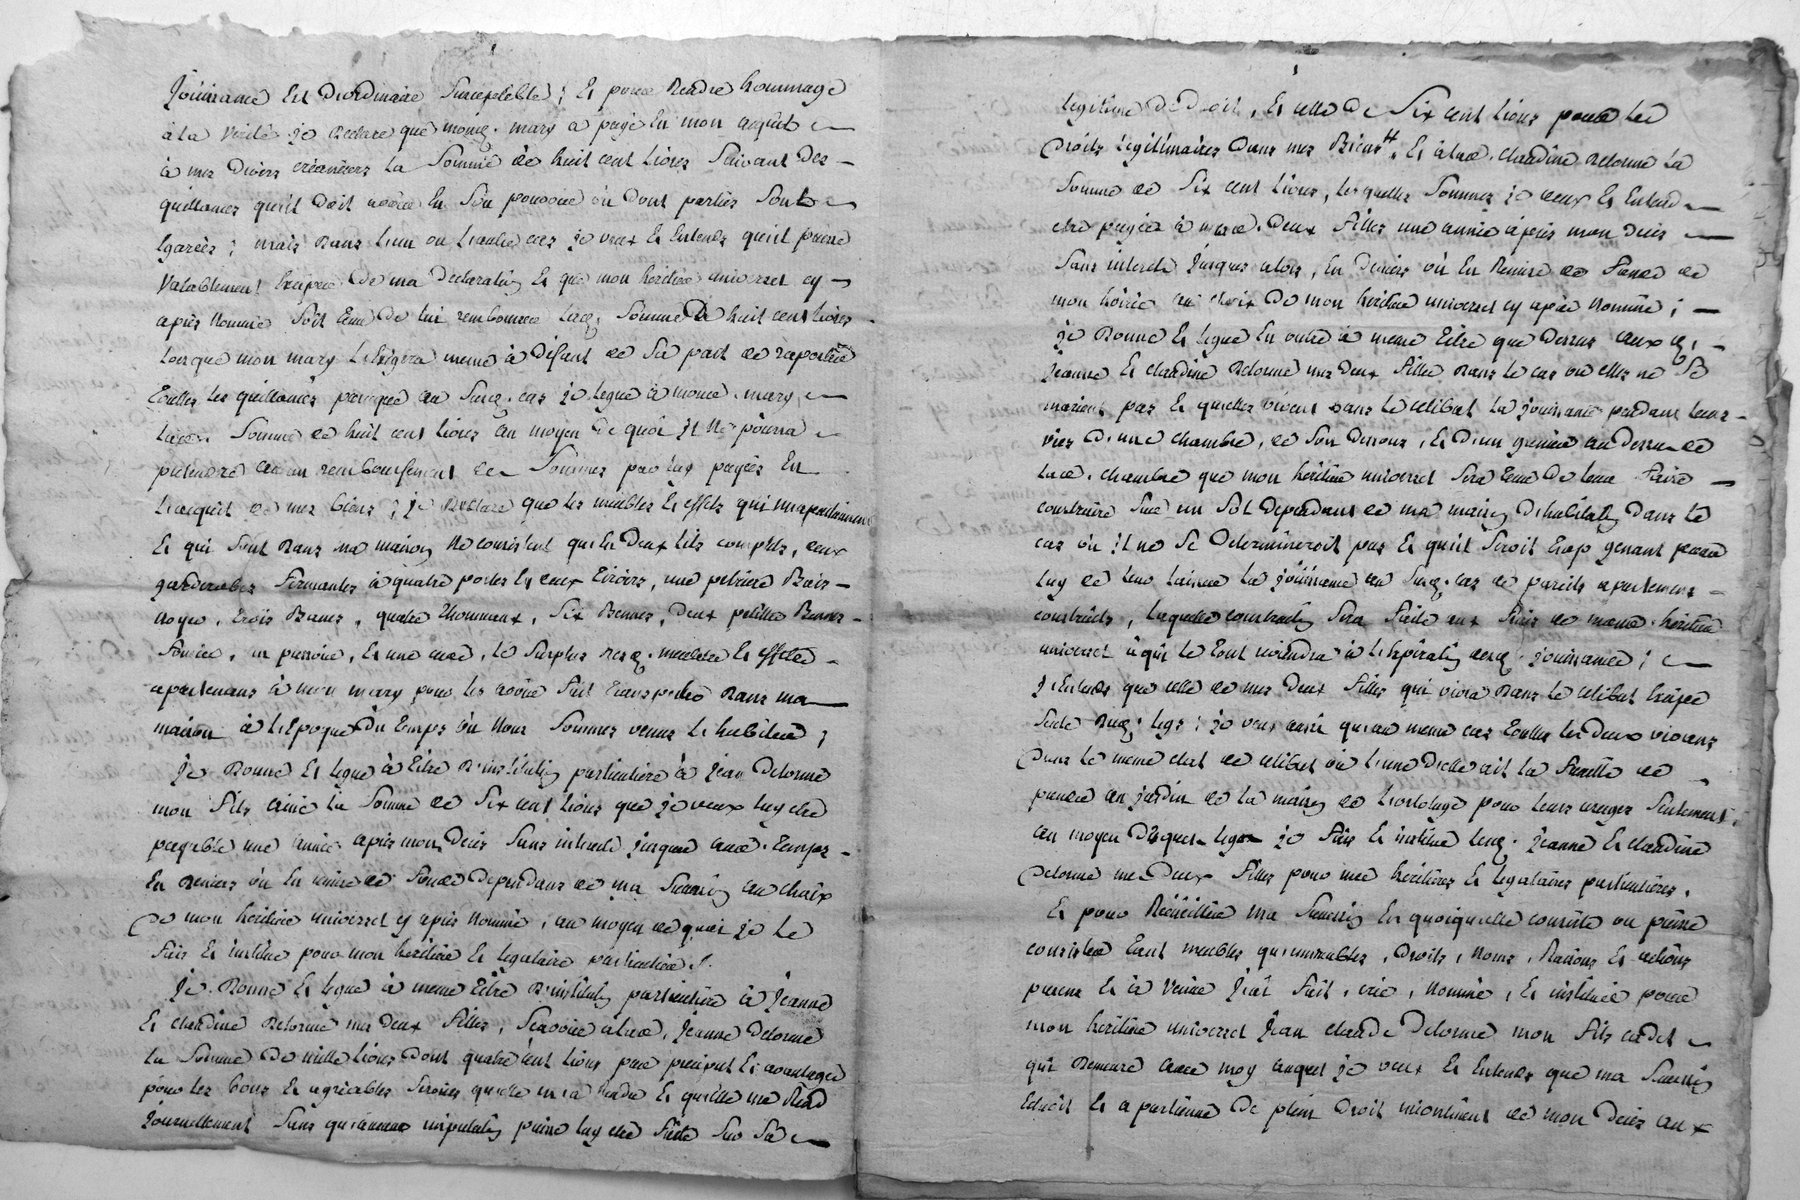 jouissance est d'ordinaire susceptible ; et pour rendre hommage
à la verité je declare que mond. mary a payé en mon acquit
à mes divers créanciers la somme de huit cent livres suivant des
quittances qu'il doit avoir en son pouvoir ou dont parties sont
egarées ; mais dans l'un ou l'autre cas je veux et entends qu'il puisse
valablement exciper de ma declara͠on et que mon héritier universel cy
après nommé soit tenu de lui rembourcer lad. somme de huit cent livres
lorsque mon mary l'exigera meme à défaut de sa part de raporter
touttes les quittances parceque au susd. cas je legue à mond. mary
lad. somme de huit cent livres au moyen de quoi il ne pourra
pretendre aucun remboursement de sommes par luy payées en
l'acquit de mes biens ; je declare que les meubles et effets qui m'apartiennent
et qui sont dans ma maison ne consistent qu'en deux lits complets, deux
garderobes fermantes à quatre portes et deux tiroirs, une petriere bois
noyer, trois bancs, quatre tonneaux, six bennes, deux petittes bennes
, un pressoir, et une cuve, le surplus desd. meubles et effets
apartenans à mon mary pour les avoir fait transporter dans ma
maison à l'epoque du temps où nous sommes venus l'habiter ;
Je donne et legue à titre d'institu͠on particuliere à Jean Delorme
mon fils ainé la somme de six cent livres que je veux luy etre
payable une année après mon decès sans interets jusques aud. temps
en deniers ou en remise de fonds dependans de ma succession au choix
de mon héritier universel cy après nommé, au moyen de quoi je le
fais et institue pour mon héritier et legataire particulier ;
Je donne et legue à meme titre d'institu͠on particuliere à Jeanne
et claudine Delorme mes deux filles, sçavoir à lad. Jeanne Delorme
la somme de mille livres dont quatre cent livres par preciput et avantage
pour les bons et agréables services qu'elle m'a rendu et qu'elle me rend
journellement sans qu'aucune imputa͠on puisse luy etre faite sur sa
legitime de droit, et celle de six cent livres pour les
droits legitimaires dans mes biens, et à lad. claudine Delorme la
somme de six cent livres, lesquelles sommes je veux et entend
etre payées à mesd. deux filles une année après mon decès
sans interets jusques alors, en deniers ou en remise de fonds de
mon hoirie au choix de mon héritier universel cy après nommé ;
je donne et legue en outre à meme titre que dessus auxd.
Jeanne et claudine Delorme mes deux filles dans le cas ou elles ne se
marient pas et qu'elles vivent dans le celibat la jouissance pendant leurs
vies d'une chambre, de son dessous, et d'un grenier au dessus de
lad. chambre que mon héritier universel sera tenu de leur faire
construire sur un sol dependant de ma maison d'habita͠on dans le
cas où il ne se determineroit pas et qu'il seroit trop genant pour
luy de leur laisser la jouissance au susd. cas de pareils apartemens
construits, laquelle construction sera faite aux frais de mond. héritier
universel à qui le tout reviendra à l'expira͠on desd. jouissances ;
j'entends que celle de mes deux filles qui vivra dans le celibat
seule dud. legs ; je veux aussi qu'au meme cas touttes les deux vivans
dans le meme etat de celibat ou l'une d'elle ait la faculté de
prendre au jardin de la maison de l'ortolage pour leurs usages seulement ;
au moyen desquels legs je fais et institue lesd. Jeanne et claudine
Delorme mes deux filles pour mes héritieres et legataires particulieres.
Et pour recüeillir ma succession en quoiqu'elle consiste ou puisse
consister tant meubles qu'immeubles, droits, noms, raisons et actions
presens et à venir j'ai fait, crée, nommé, et institué pour
mon héritier universel Jean claude Delorme mon fils cadet
qui demeure avec moy auquel je veux et entends que ma succession
echoit et apartienne de plein droit incontinent de mon decès aux